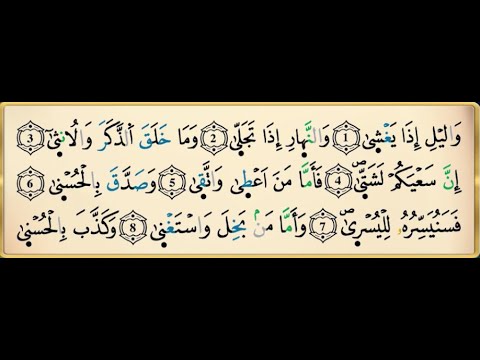 وَالَّيْلِ إِذَا يَغْشٰى ۝1 وَالنَّهَارِ إِذَا تَجَلّٰى ۝2 وَمَا خَلَقَ الذَّكَرَ وَالْاُنْثٰى ۝3
إِنَّ سَعْيَكُمْ لَشَتّٰى ۝4 فَأَمَّا مَنْ اَعْطٰى وَاتَّقٰى ۝5 وَصَدَّقَ بِالْحُسْنٰى ۝6
فَسَنُيَسِّرُهُ لِلْيُسْرٰى ۝7 وَأَمَّا مَنْ بَخِلَ وَاسْتَغْنٰى ۝8 وَكَذَّبَ بِالْحُسْنٰى